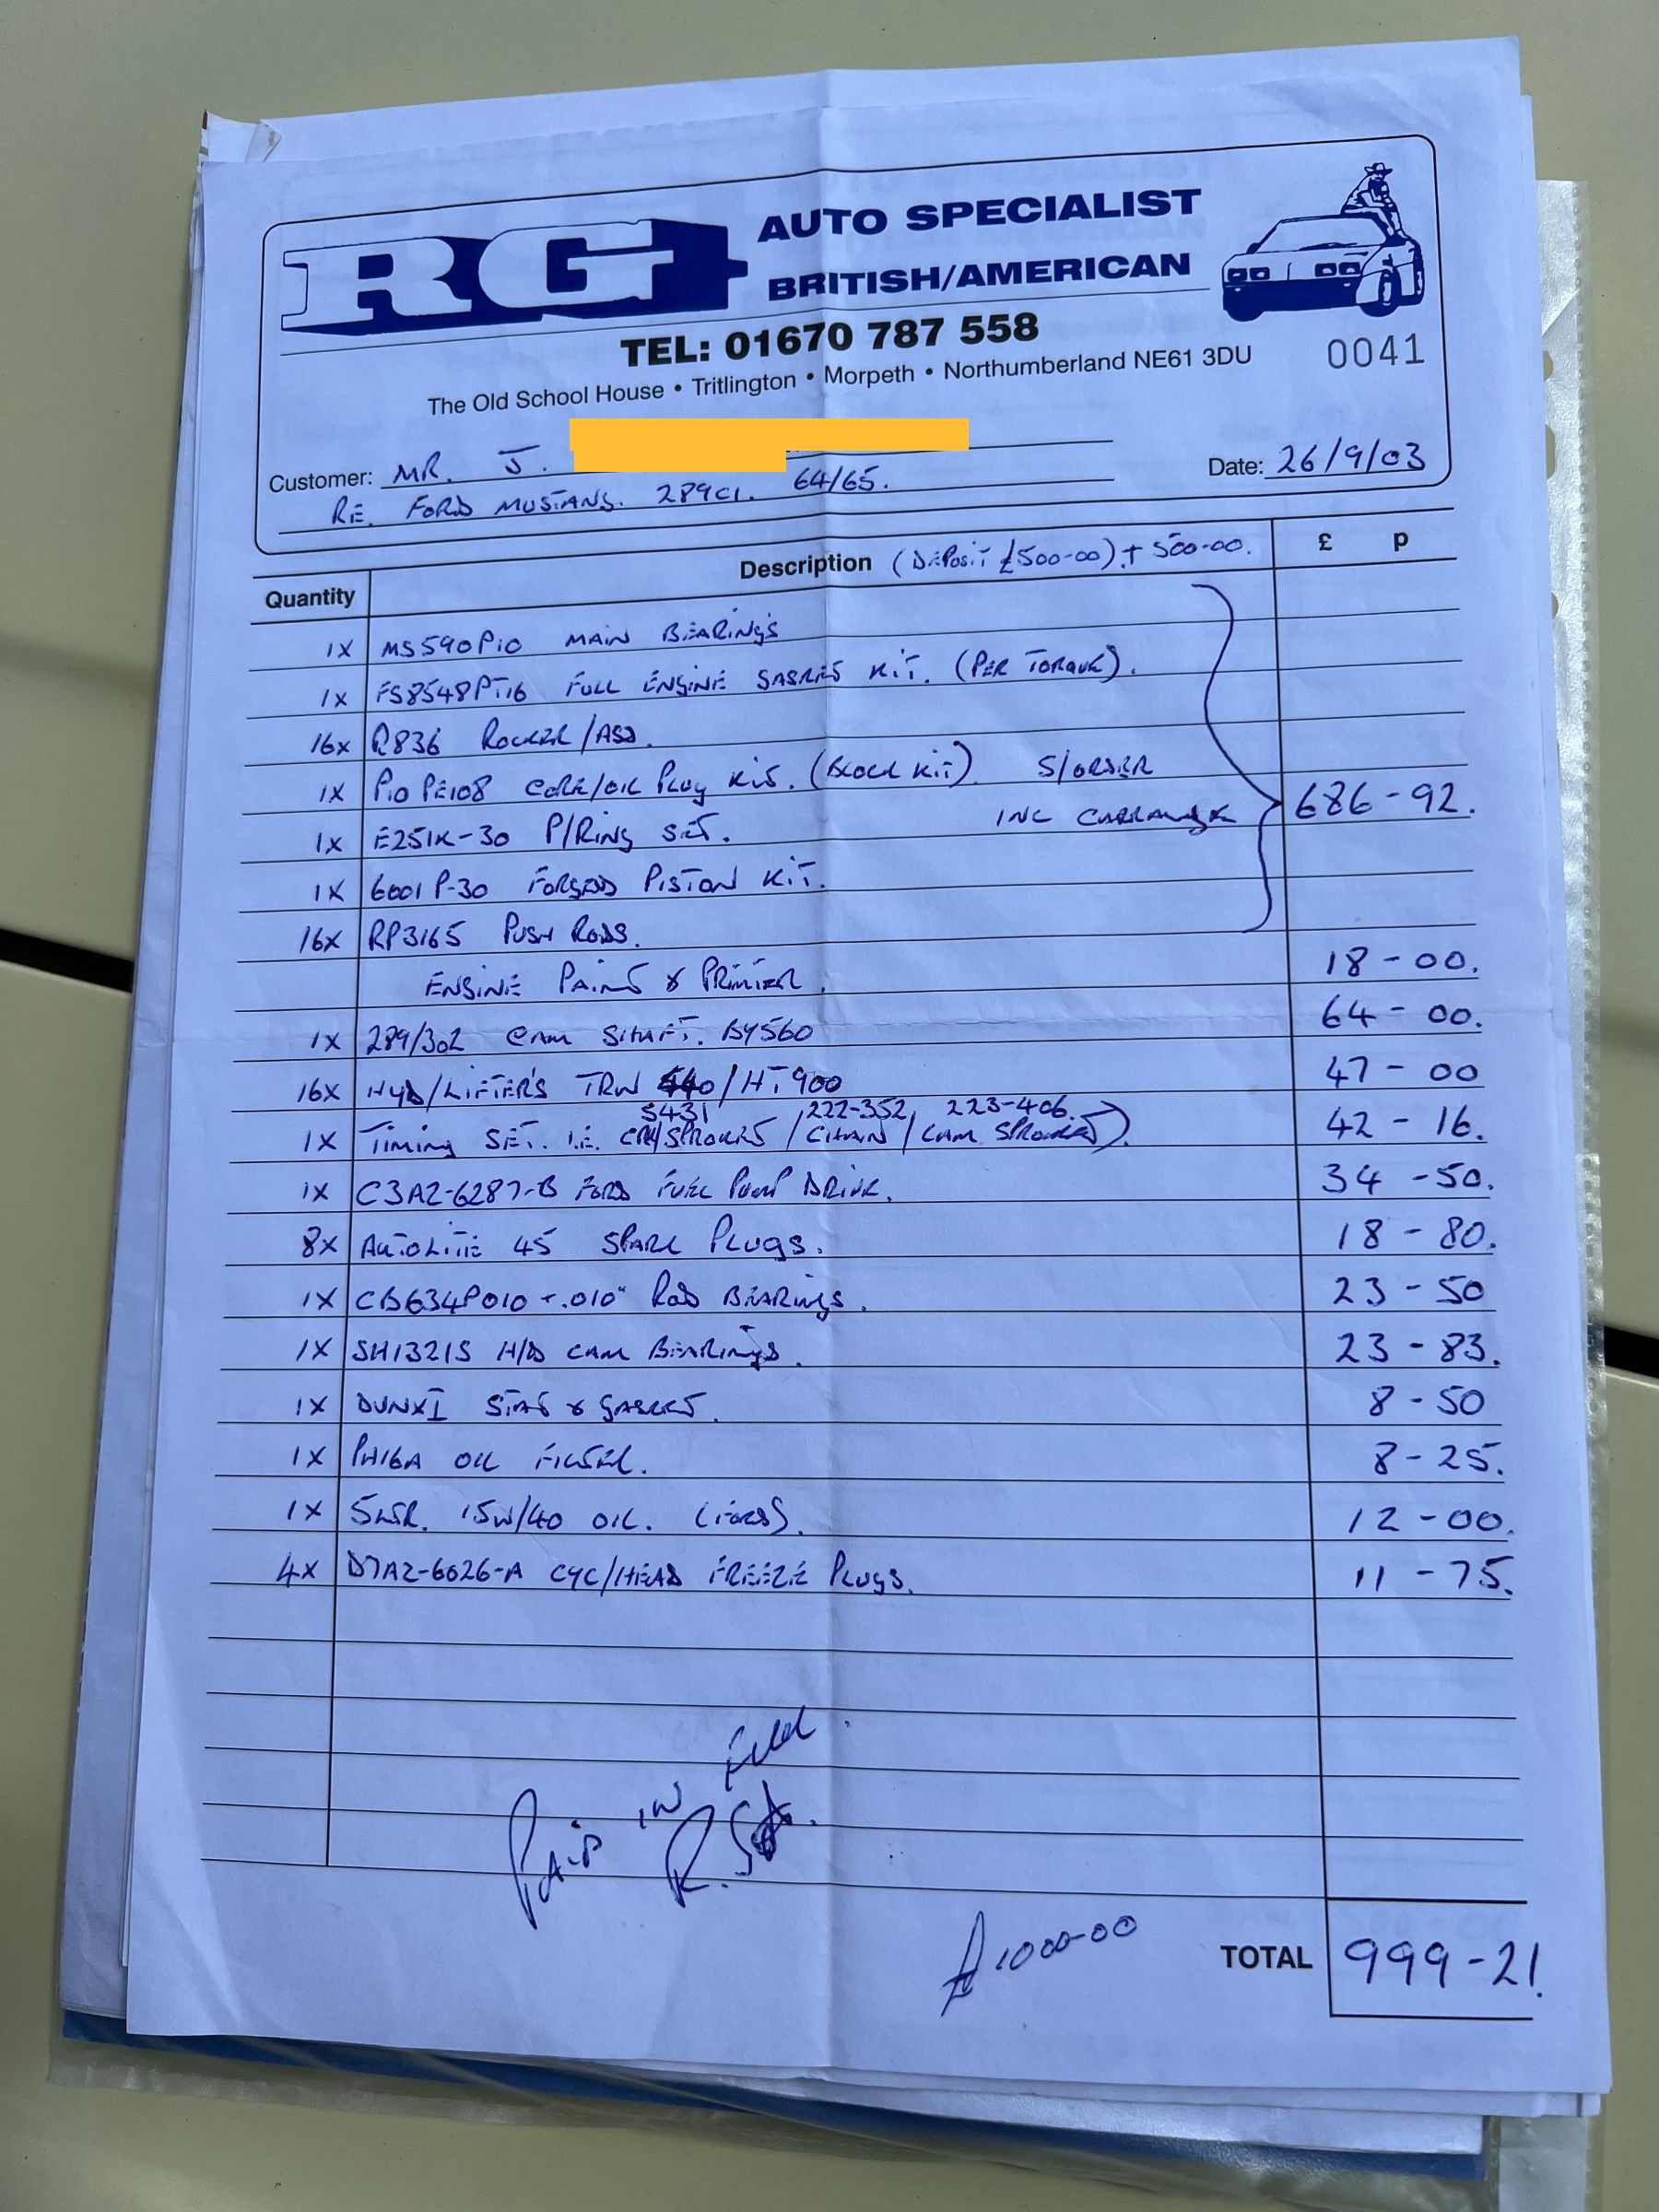 RG AUTO SPECIALIST
BRITISH/AMERICAN
TEL: 01670 787 558
The Old School House • Tritlington • Morpeth • Northumberland NE61 3DU
0041
Customer: MR. J.
Date: 26/9/03
RE. FORD MUSTANG. 289CI. 64/65.
Quantity Description (DEPOSIT £500-00) + 500-00. £ p
1X MS590P10 MAIN BEARINGS
1X FS8548PT16 FULL ENGINE GASKET KIT. (PER TORQUE).
16X R836 ROCKER/ASS.
1X P10 PE108 CORE/OIL PLUG KIT. (BLOCK KIT) S/ORDER
1X E251K-30 P/RING SET. INC CARRIAGE 686-92.
1X 6001P-30 FORGED PISTON KIT.
16X RP3165 PUSH RODS.
ENGINE PAINT & PRIMER. 18-00.
1X 289/302 CAM SHAFT. BY560 64-00.
16X HYD/LIFTER'S TRW /HT900 47-00
S431 222-352 223-406.
1X TIMING SET. I.E. CRK/SPROCKET/CHAIN/CAM SPROCKET). 42-16.
1X C3AZ-6287-B FORD FUEL PUMP DRIVE. 34-50.
8X AUTOLITE 45 SPARK PLUGS. 18-80.
1X CB634P010 -.010" ROD BEARINGS. 23-50
1X SH1321S H/D CAM BEARINGS. 23-83.
1X STAT & GASKET. 8-50
1X PH16A OIL FILTER. 8-25.
1X 5LTR. 15W/40 OIL. (FORD). 12-00.
4X D7AZ-6026-A CYL/HEAD FREEZE PLUGS. 11-75.
PAID IN FULL.
R.
£1000-00
TOTAL 999-21.